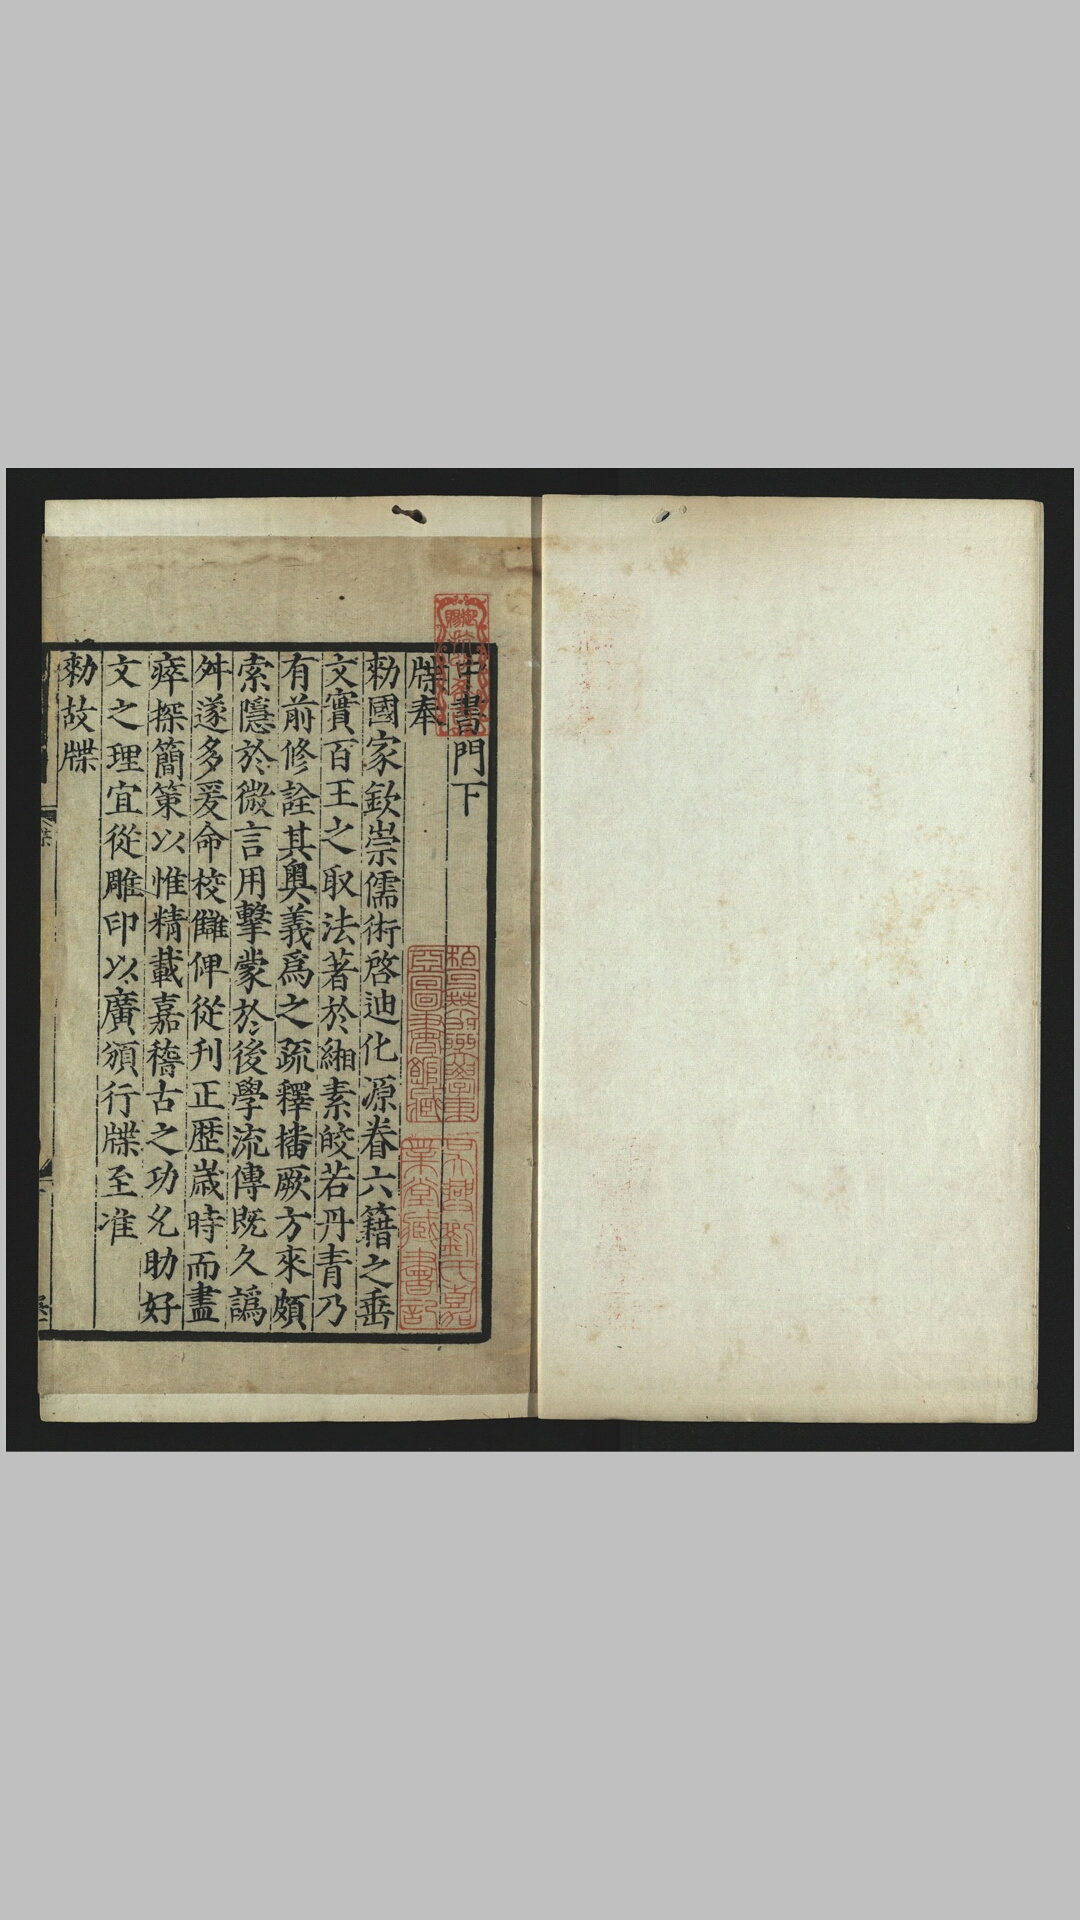 中書門下
牒奉
勑國家欽崇儒術啓迪化源眷六籍之垂
文實百王之取法著於緗素皎若丹青乃
有前修詮其奧義爲之疏釋播厥方來頗
索隱於微言用擊蒙於後學流傳既久譌
舛遂多爰命校讎俾從刋正歴歲時而盡
瘁探簡策以惟精載嘉稽古之功允助好
文之理宜從雕印以廣頒行牒至准
勑故牒
吳興劉氏嘉
業堂藏書記